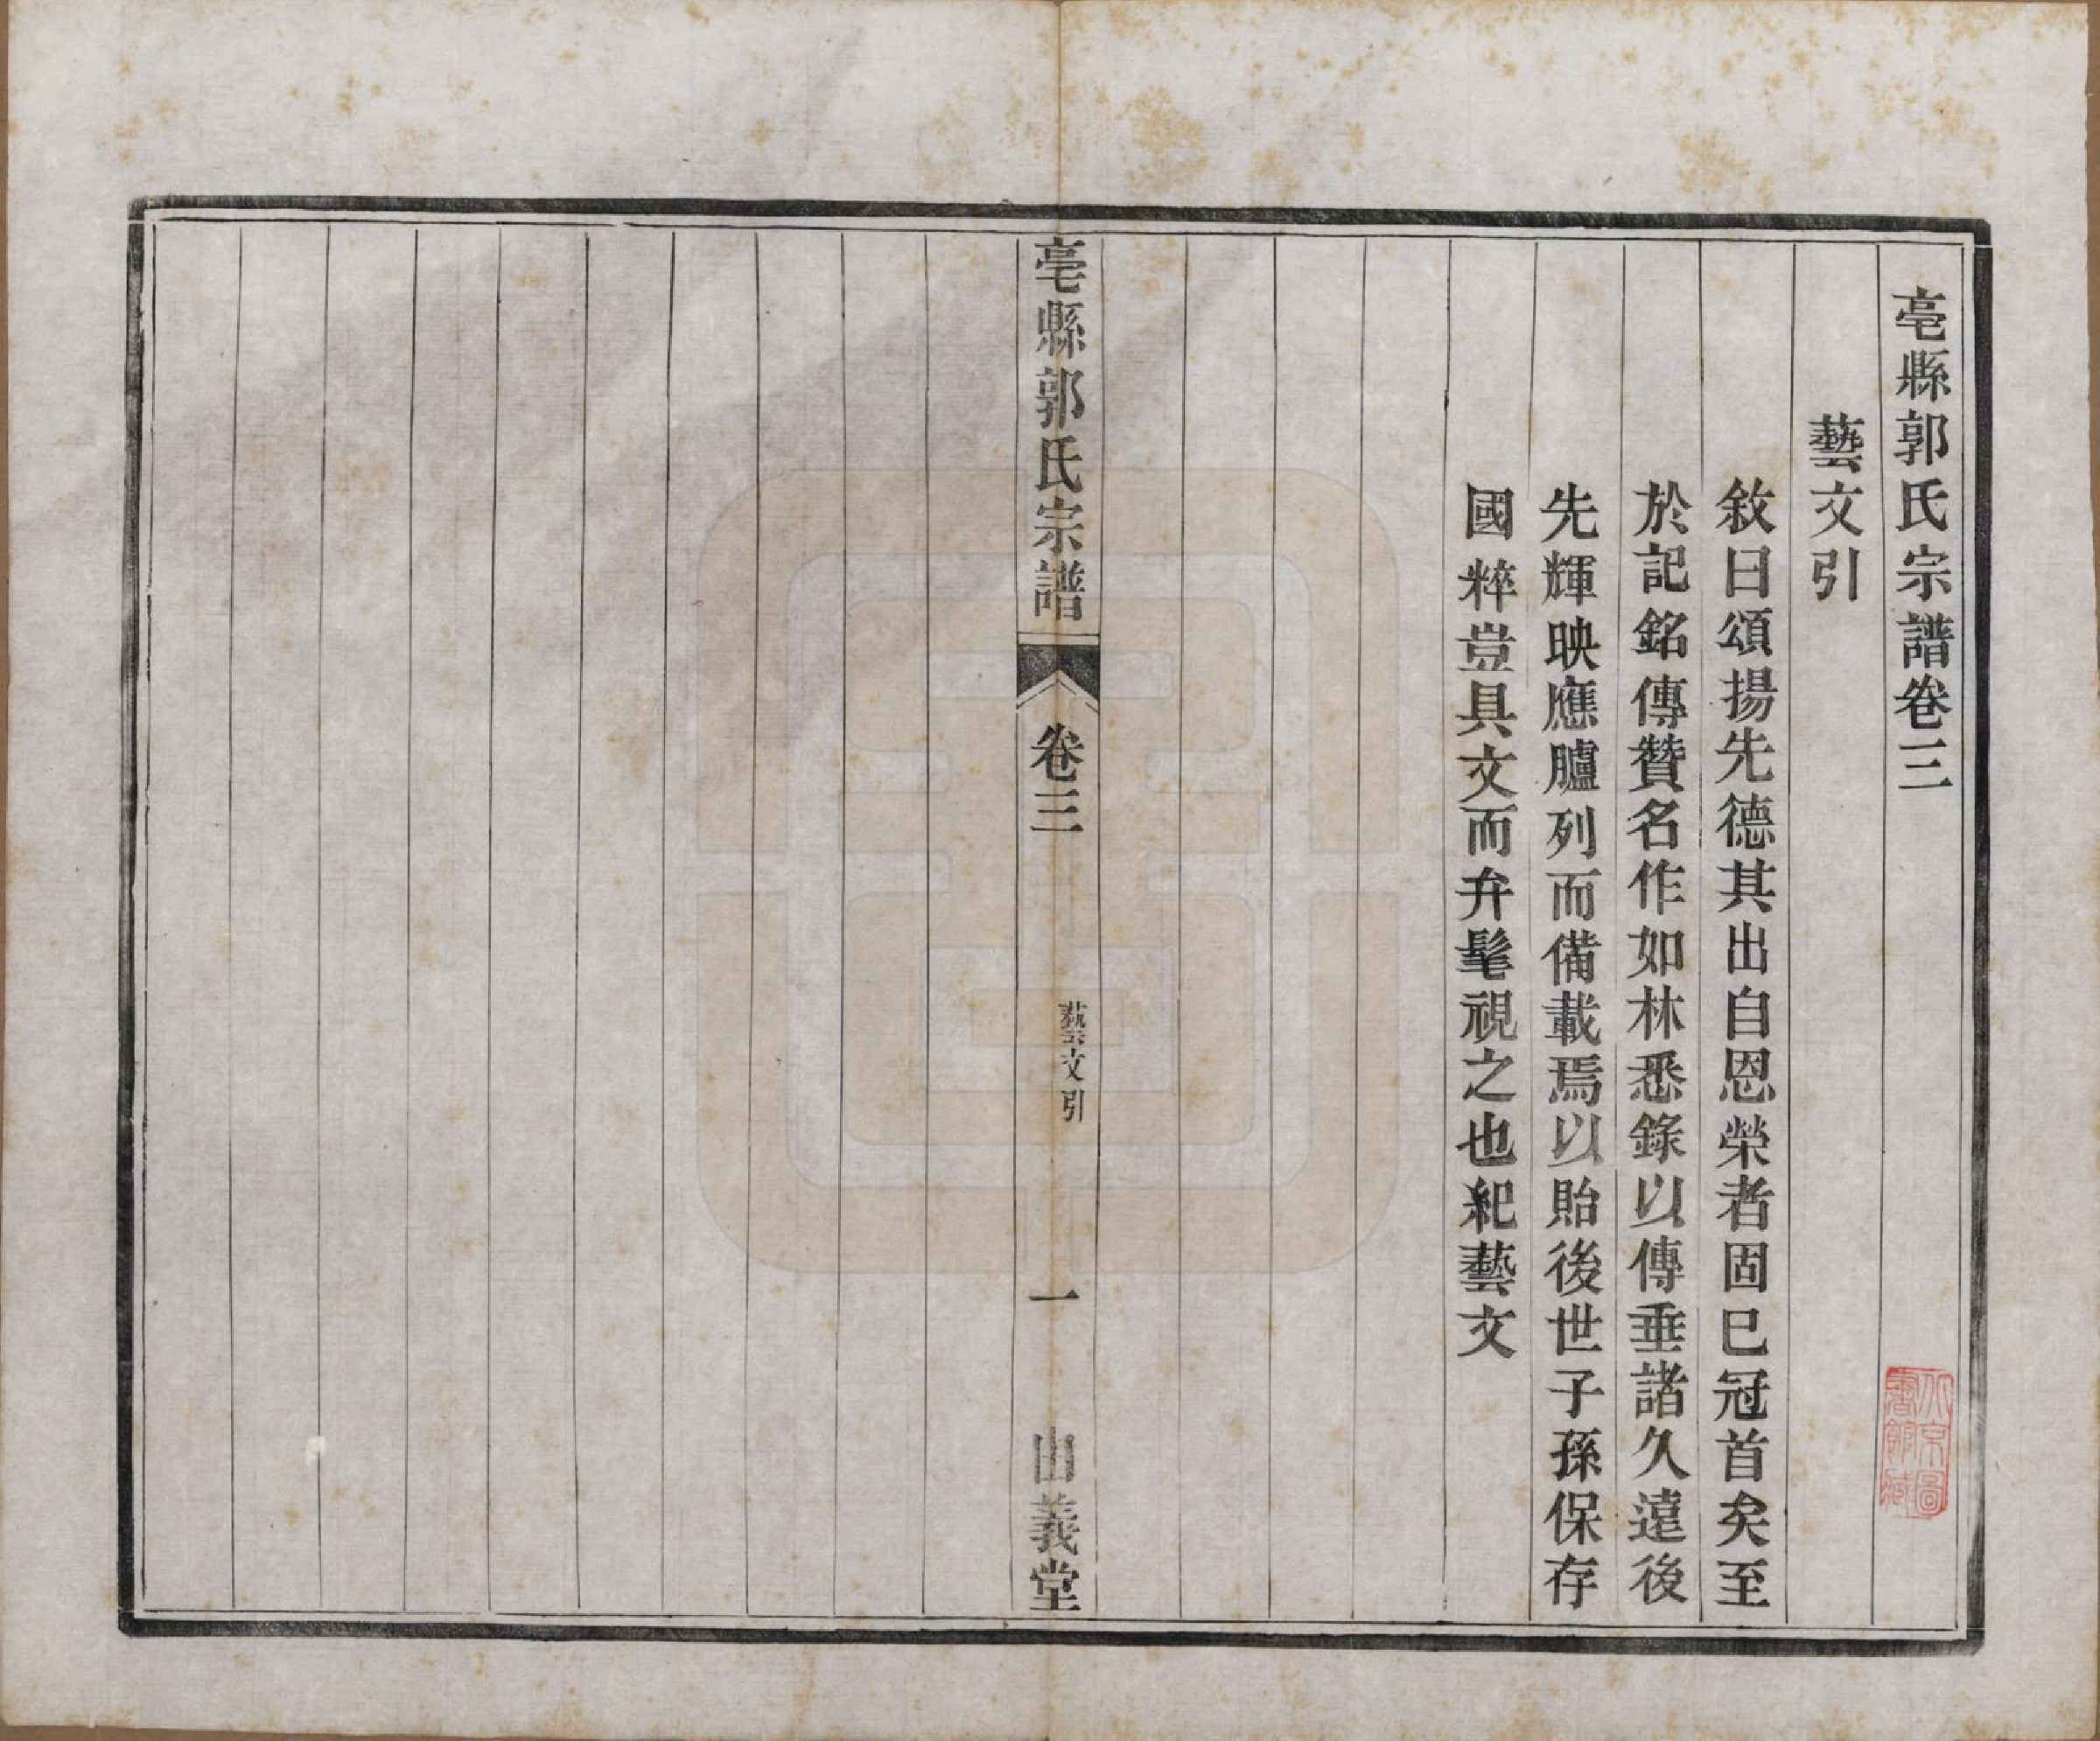 亳縣郭氏宗譜卷三
藝文引
敘曰頌揚先德其出自恩榮者固巳冠首矣至
於記銘傳贊名作如林悉錄以傳垂諸久遠後
先輝映應臚列而備載焉以貽後世子孫保存
國粹豈具文而弁髦視之也紀藝文
亳縣郭氏宗譜
卷三
藝文引
一
由義堂
北京圖
書館藏